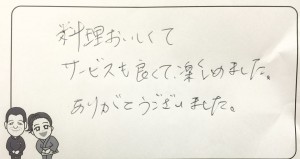 料理おいしくて
サービスも良くて、楽しめました。
ありがとうございました。